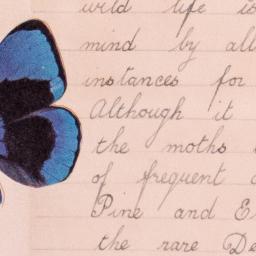 wild life is
mind by all
instances for
Although it
the moths
of frequent
Pine and E
the rare De